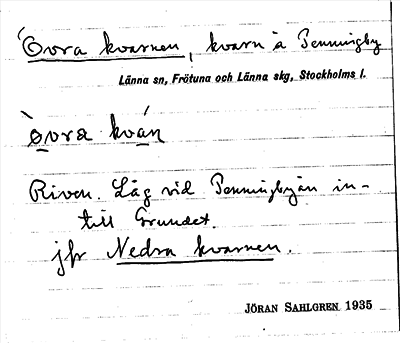 Övra kvarnen, kvarn å Penningby
Länna sn, Frötuna och Länna skg, Stockholms l.
òvra kván
Riven. Låg vid Penningbyån in-
till Grundet.
jfr Nedra kvarnen.
JÖRAN SAHLGREN 1935